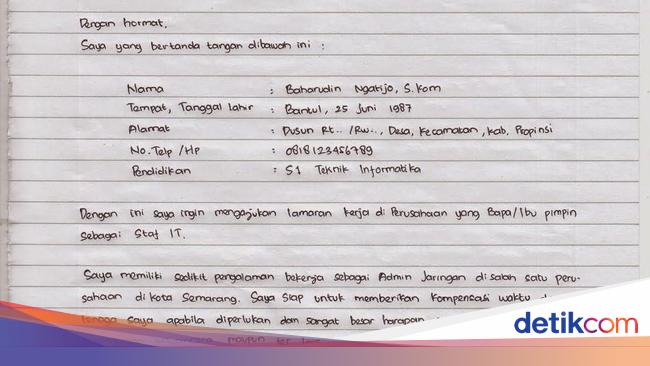 Dengan hormat,
Saya yang bertanda tangan dibawah ini :
Nama : Baharudin Ngatijo, S.Kom
Tempat, Tanggal lahir : Bantul, 25 Juni 1987
Alamat : Dusun Rt.. /Rw.., Desa, Kecamatan, Kab, Propinsi
No. Telp /Hp : 0818123456789
Pendidikan : S1 Teknik Informatika
Dengan ini saya ingin mengajukan lamaran kerja di Perusahaan yang Bapa/Ibu pimpin
sebagai Staf IT.
Saya memiliki sedikit pengalaman bekerja sebagai Admin Jaringan di salah satu peru-
sahaan di kota Semarang. Saya siap untuk memberikan kompensasi waktu
tenaga saya apabila diperlukan dan sangat besar harapan
maupun
detikcom